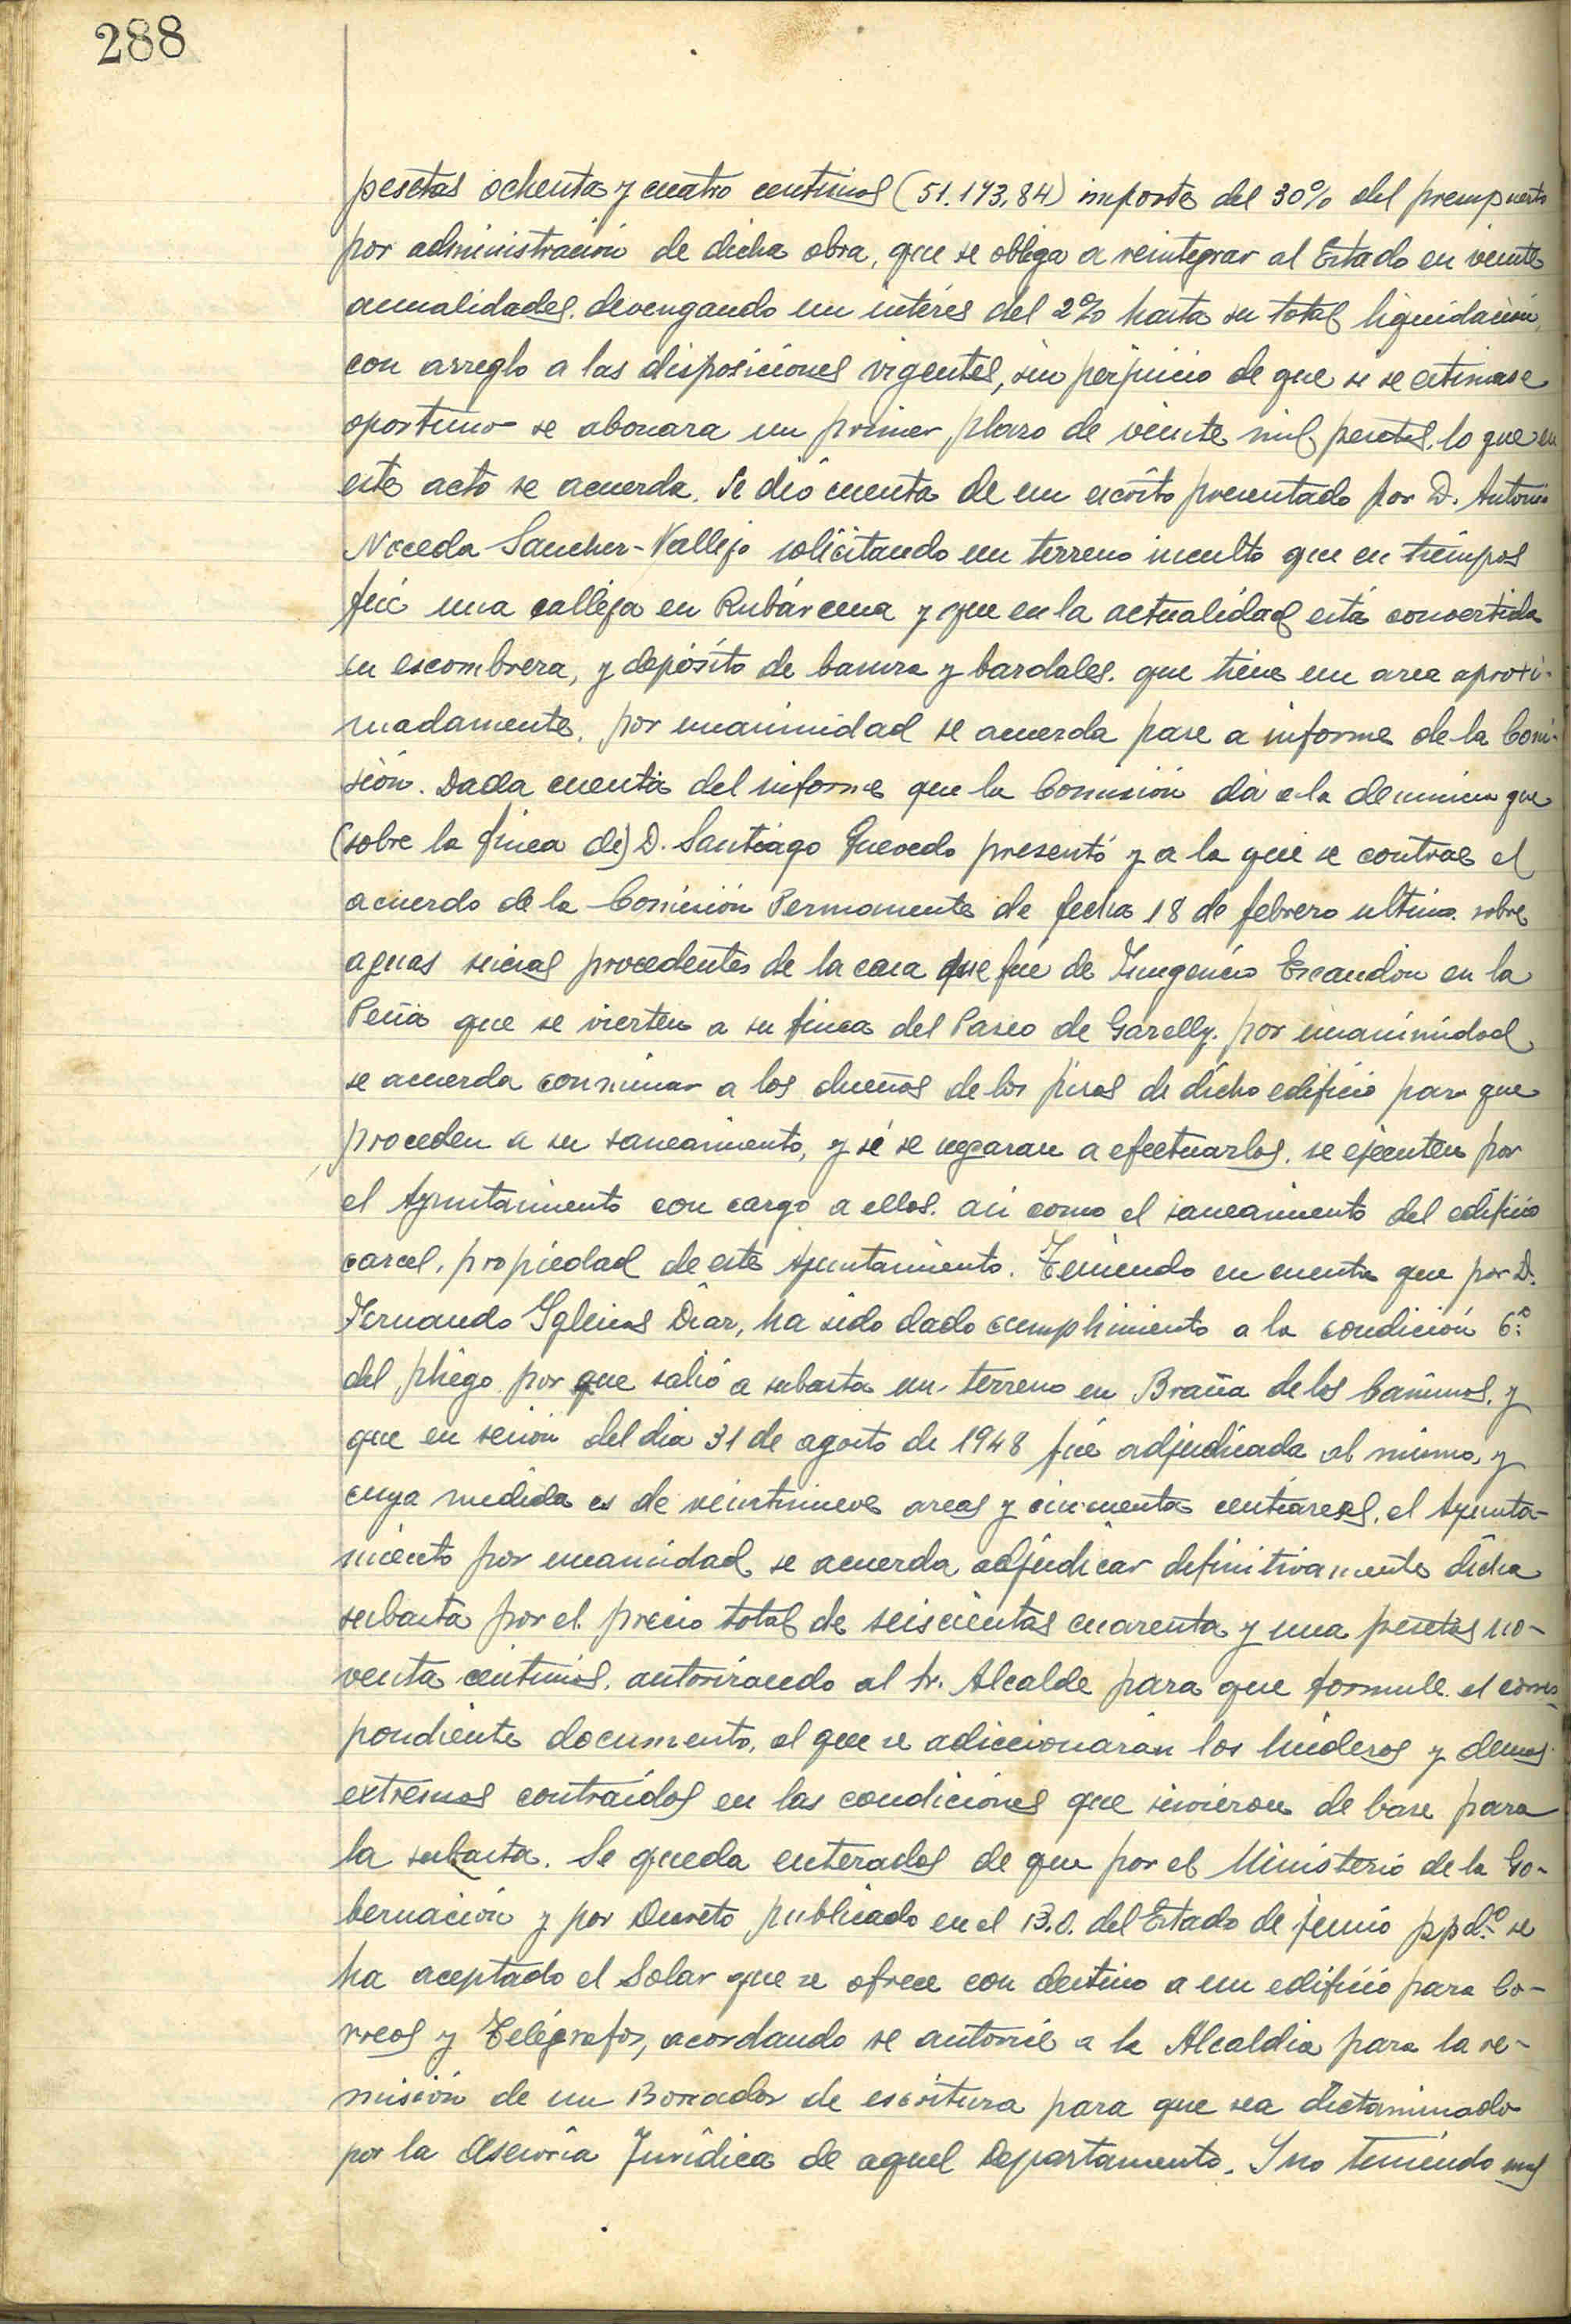 288
pesetas ochenta y cuatro centimos (51.173,84) importe del 30% del presupuesto
por administración de dicha obra, que se obliga a reintegrar al Estado en veinte
anualidades. devengando un interés del 2% hasta su total liquidación,
con arreglo a las disposiciones vigentes, sin perjuicio de que si se estimase
oportuno se abonara un primer plazo de veinte mil pesetas. lo que en
este acto se acuerda. Se dió cuenta de un escrito presentado por D. Antonio
Noceda Sanchez-Vallejo solicitando un terreno inculto que en tiempos
fué una calleja en Rubárcena y que en la actualidad está convertida
en escombrera, y depósito de basura y bardales. que tiene un area aproxi-
madamente. por unanimidad se acuerda pase a informe de la Comi-
sión. Dada cuenta del informe que la Comisión dá a la denuncia que
(sobre la finca de) D. Santiago Quevedo presentó y a la que se contrae el
acuerdo de la Comisión Permanente de fecha 18 de febrero ultimo. sobre
aguas sucias procedentes de la casa que fué de Fungencio Escandón en la
Peña que se vierten a su finca del Paseo de Garelly. por unanimidad
se acuerda conminar a los dueños de los pisos de dicho edificio para que
proceden a su saneamiento, y si se negaran a efectuarlos. se ejecuten por
el Ayuntamiento con cargo a ellos. asi como el saneamiento del edificio
carcel, propiedad de este Ayuntamiento. Teniendo en cuenta que por D.
Fernando Iglesias Diaz, ha sido dado cumplimiento a la condición 6ª
del pliego por que salió a subasta un terreno en Braña de los Caminos. y
que en sesión del dia 31 de agosto de 1948 fué adjudicada al mismo, y
cuya medida es de veintinueve areas y cincuenta centiareas. el Ayunta-
miento por unanimidad se acuerda adjudicar definitivamente dicha
subasta por el precio total de seiscientas cuarenta y una pesetas no-
venta centimos. autorizando al Sr. Alcalde para que formule el corres-
pondiente documento, al que se adiccionarán los linderos y demas
extremos contraídos en las condiciones que sirvieron de base para
la subasta. Se queda enterados de que por el Ministerio de la Go-
bernación y por Decreto publicado en el B.O. del Estado de junio ppdº se
ha aceptado el Solar que se ofrece con destino a un edificio para Co-
rreos y Telégrafos, acordando se autorice a la Alcaldia para la re-
misión de un Borrador de escritura para que sea dictaminado
por la Asesoría Jurídica de aquel Departamento. Y no teniendo mas